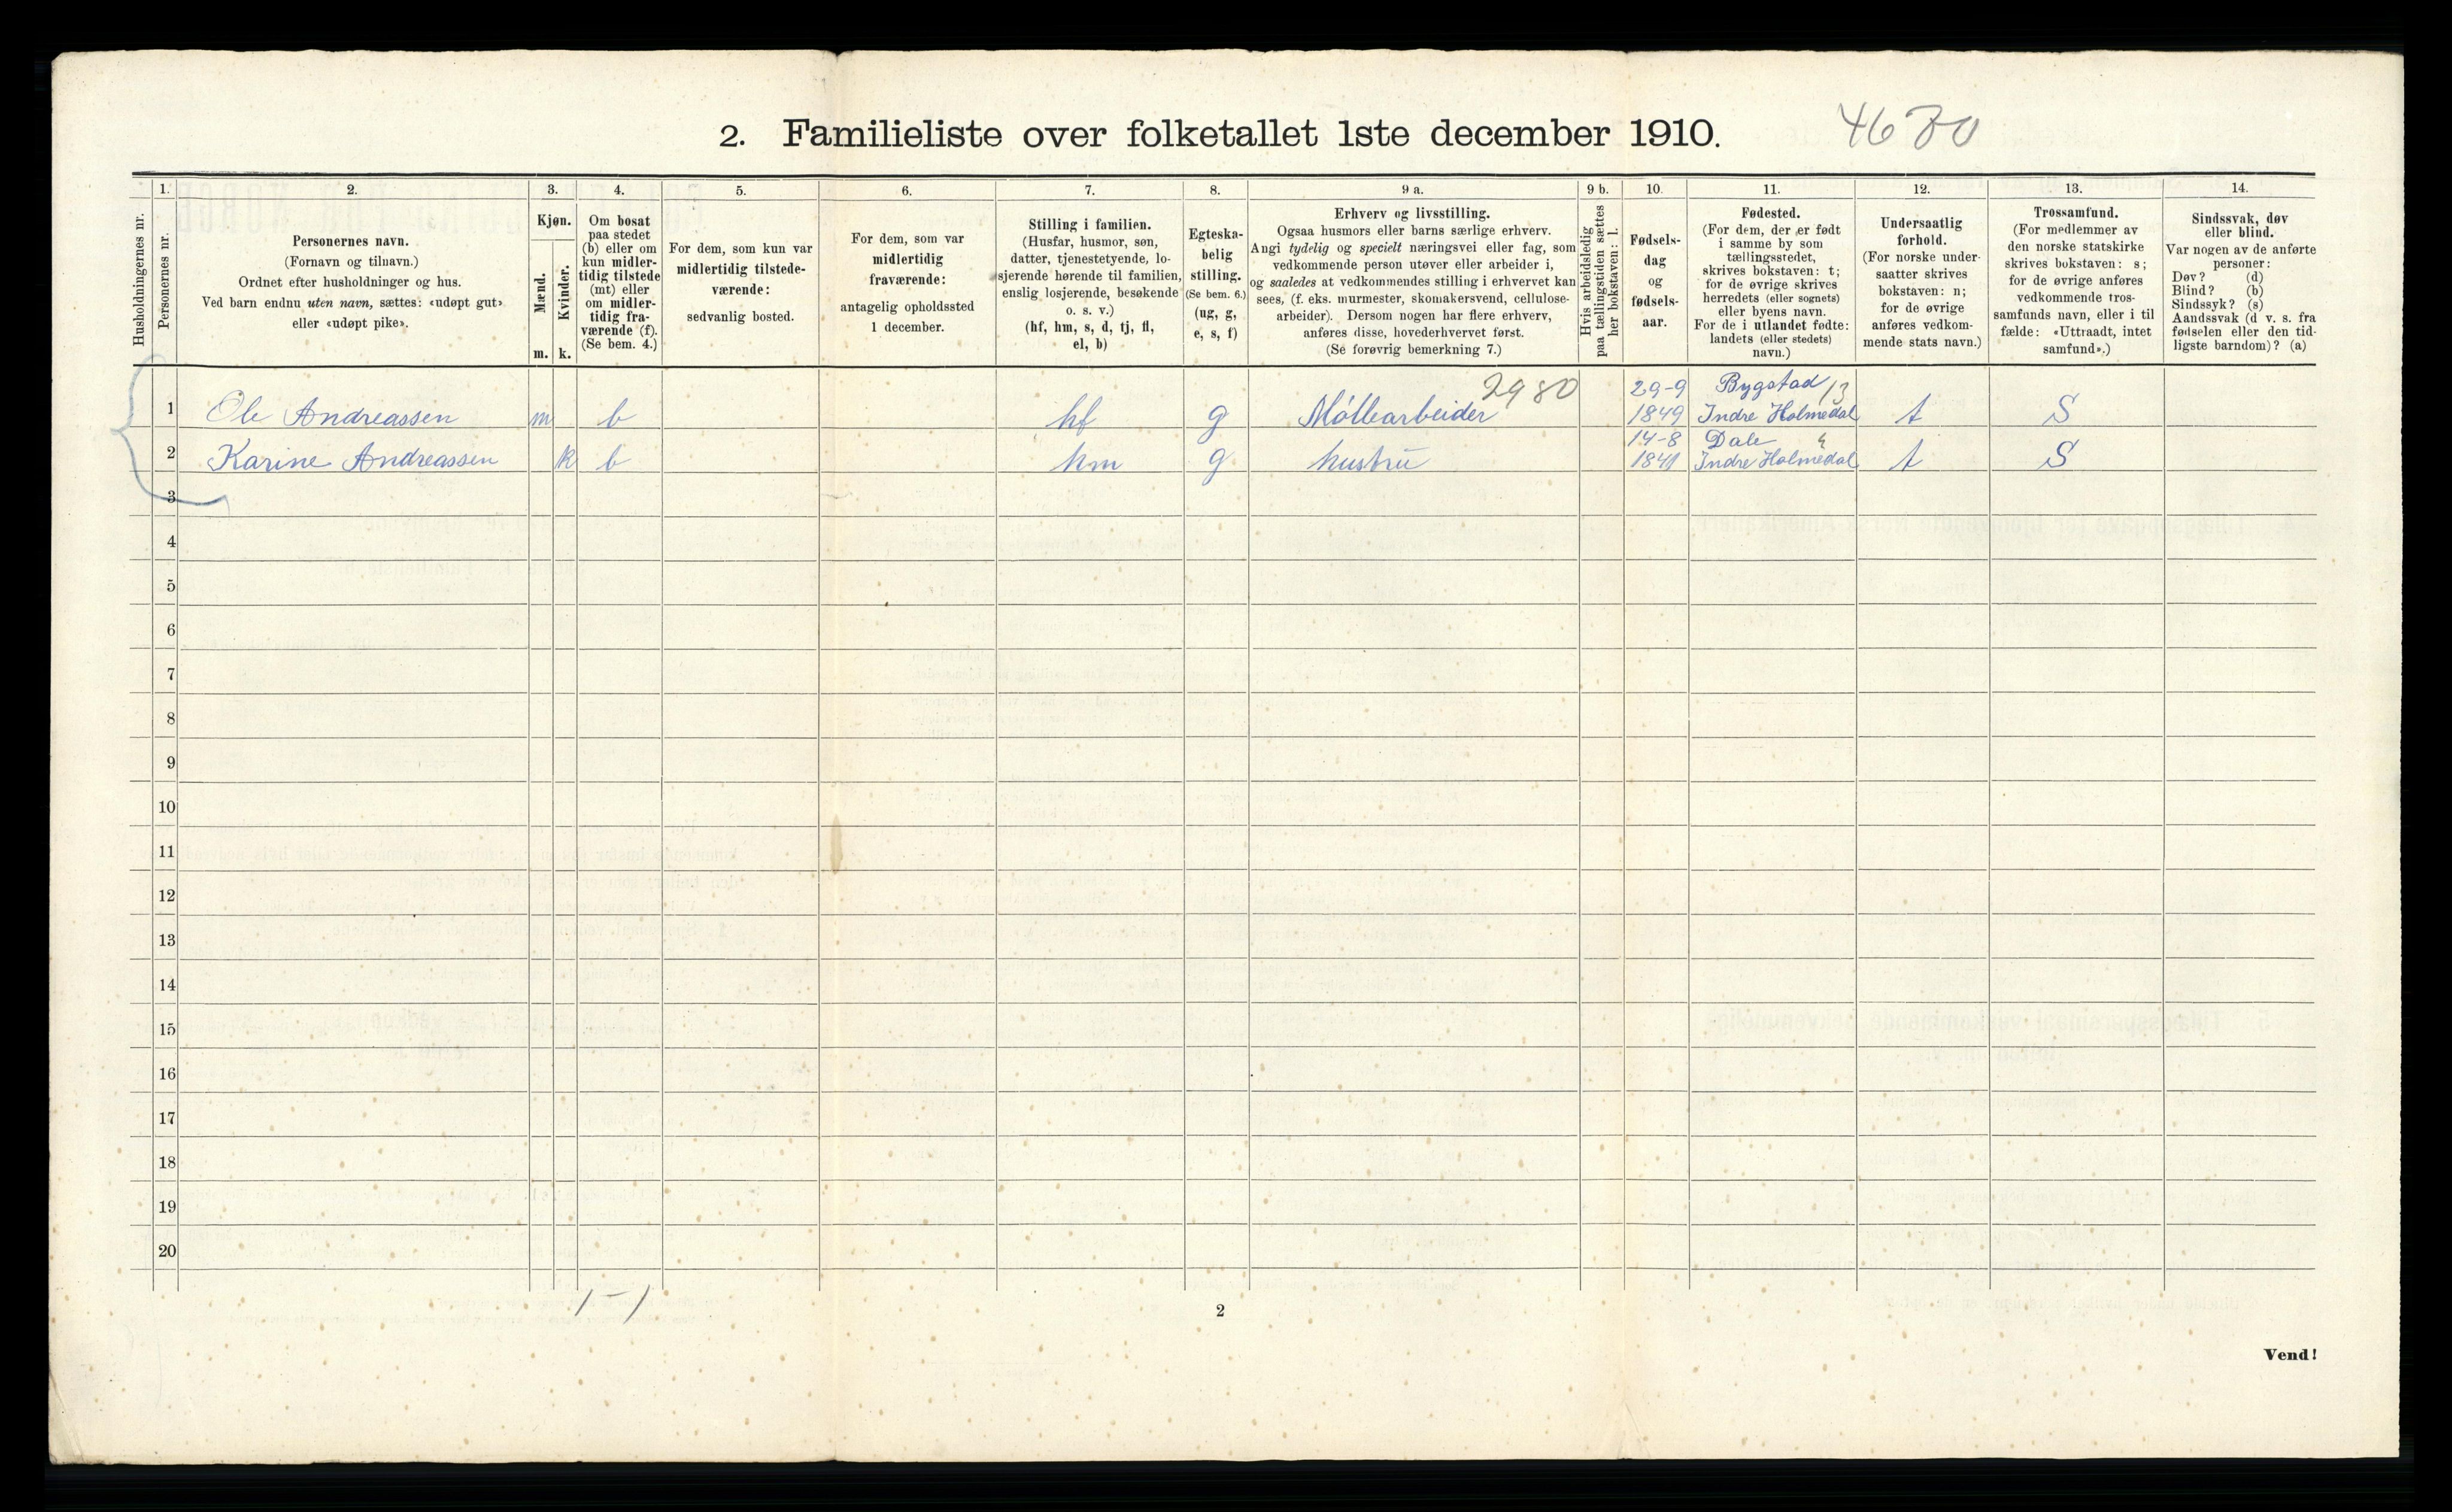 2. Familieliste over folketallet 1ste december 1910.
1. 2. 3. 4. 5. 6. 7. 8. 9 a. 9 b. 10. 11. 12. 13. 14.
Husholdningernes nr.
Personernes nr.
Personernes navn.
(Fornavn og tilnavn.)
Ordnet efter husholdninger og hus.
Ved barn endnu uten navn, sættes: «udøpt gut»
eller «udøpt pike».
Kjøn.
Mænd.
Kvinder.
m. k.
Om bosat
paa stedet
(b) eller om
kun midler-
tidig tilstede
(mt) eller
om midler-
tidig fra-
værende (f).
(Se bem. 4.)
For dem, som kun var
midlertidig tilstede-
værende:
sedvanlig bosted.
For dem, som var
midlertidig
fraværende:
antagelig opholdssted
1 december.
Stilling i familien.
(Husfar, husmor, søn,
datter, tjenestetyende, lo-
sjerende hørende til familien,
enslig losjerende, besøkende
o. s. v.)
(hf, hm, s, d, tj, fl,
el, b)
Egteska-
belig
stilling.
(Se bem. 6.)
(ug, g,
e, s, f)
Erhverv og livsstilling.
Ogsaa husmors eller barns særlige erhverv.
Angi tydelig og specielt næringsvei eller fag, som
vedkommende person utøver eller arbeider i,
og saaledes at vedkommendes stilling i erhvervet kan
sees, (f. eks. murmester, skomakersvend, cellulose-
arbeider). Dersom nogen har flere erhverv,
anføres disse, hovederhvervet først.
(Se forøvrig bemerkning 7.)
Hvis arbeidsledig
paa tællingstiden sættes
her bokstaven: l.
Fødsels-
dag
og
fødsels-
aar.
Fødested.
(For dem, der er født
i samme by som
tællingsstedet,
skrives bokstaven: t;
for de øvrige skrives
herredets (eller sognets)
eller byens navn.
For de i utlandet fødte:
landets (eller stedets)
navn.)
Undersaatlig
forhold.
(For norske under-
saatter skrives
bokstaven: n;
for de øvrige
anføres vedkom-
mende stats navn.)
Trossamfund.
(For medlemmer av
den norske statskirke
skrives bokstaven: s;
for de øvrige anføres
vedkommende tros-
samfunds navn, eller i til
fælde: «Uttraadt, intet
samfund».)
Sindssvak, døv
eller blind.
Var nogen av de anførte
personer:
Døv? (d)
Blind? (b)
Sindssyk? (s)
Aandssvak (d v. s. fra
fødselen eller den tid-
ligste barndom)? (a)
2980 29-9 Bygstad 13
1 Ole Andreassen m b hf g Møllearbeider 1849 Indre Holmedal t S
14-8 Dale
2 Karine Andreassen k b hm g hustru 1841 Indre Holmedal t S
3
4
5
6
7
8
9
10
11
12
13
14
15
16
17
18
19
20
1-1
2
Vend!